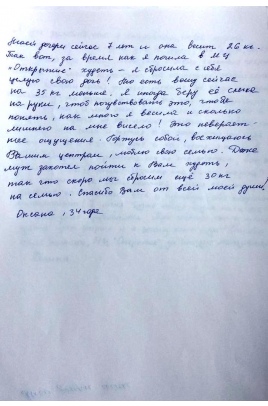 Моей дочери сейчас 7 лет и она весит 26 кг.
Так вот, за время как я пошла в МЦ
"Открытие" худеть - я сбросила с себя
целую свою дочь! То есть вешу сейчас
на 35 кг меньше. Я иногда беру её слегка
на руки, чтоб почувствовать это, чтобы
понять, как много я весила и сколько
лишнего на мне висело! Это невероят-
ное ощущение. Горжусь собой, восхищаюсь
Вашим центром, люблю свою семью. Даже
муж захотел пойти к Вам худеть,
так что скоро мы сбросим ещё 30 кг
на семью. Спасибо Вам от всей моей души!
Оксана, 34 года